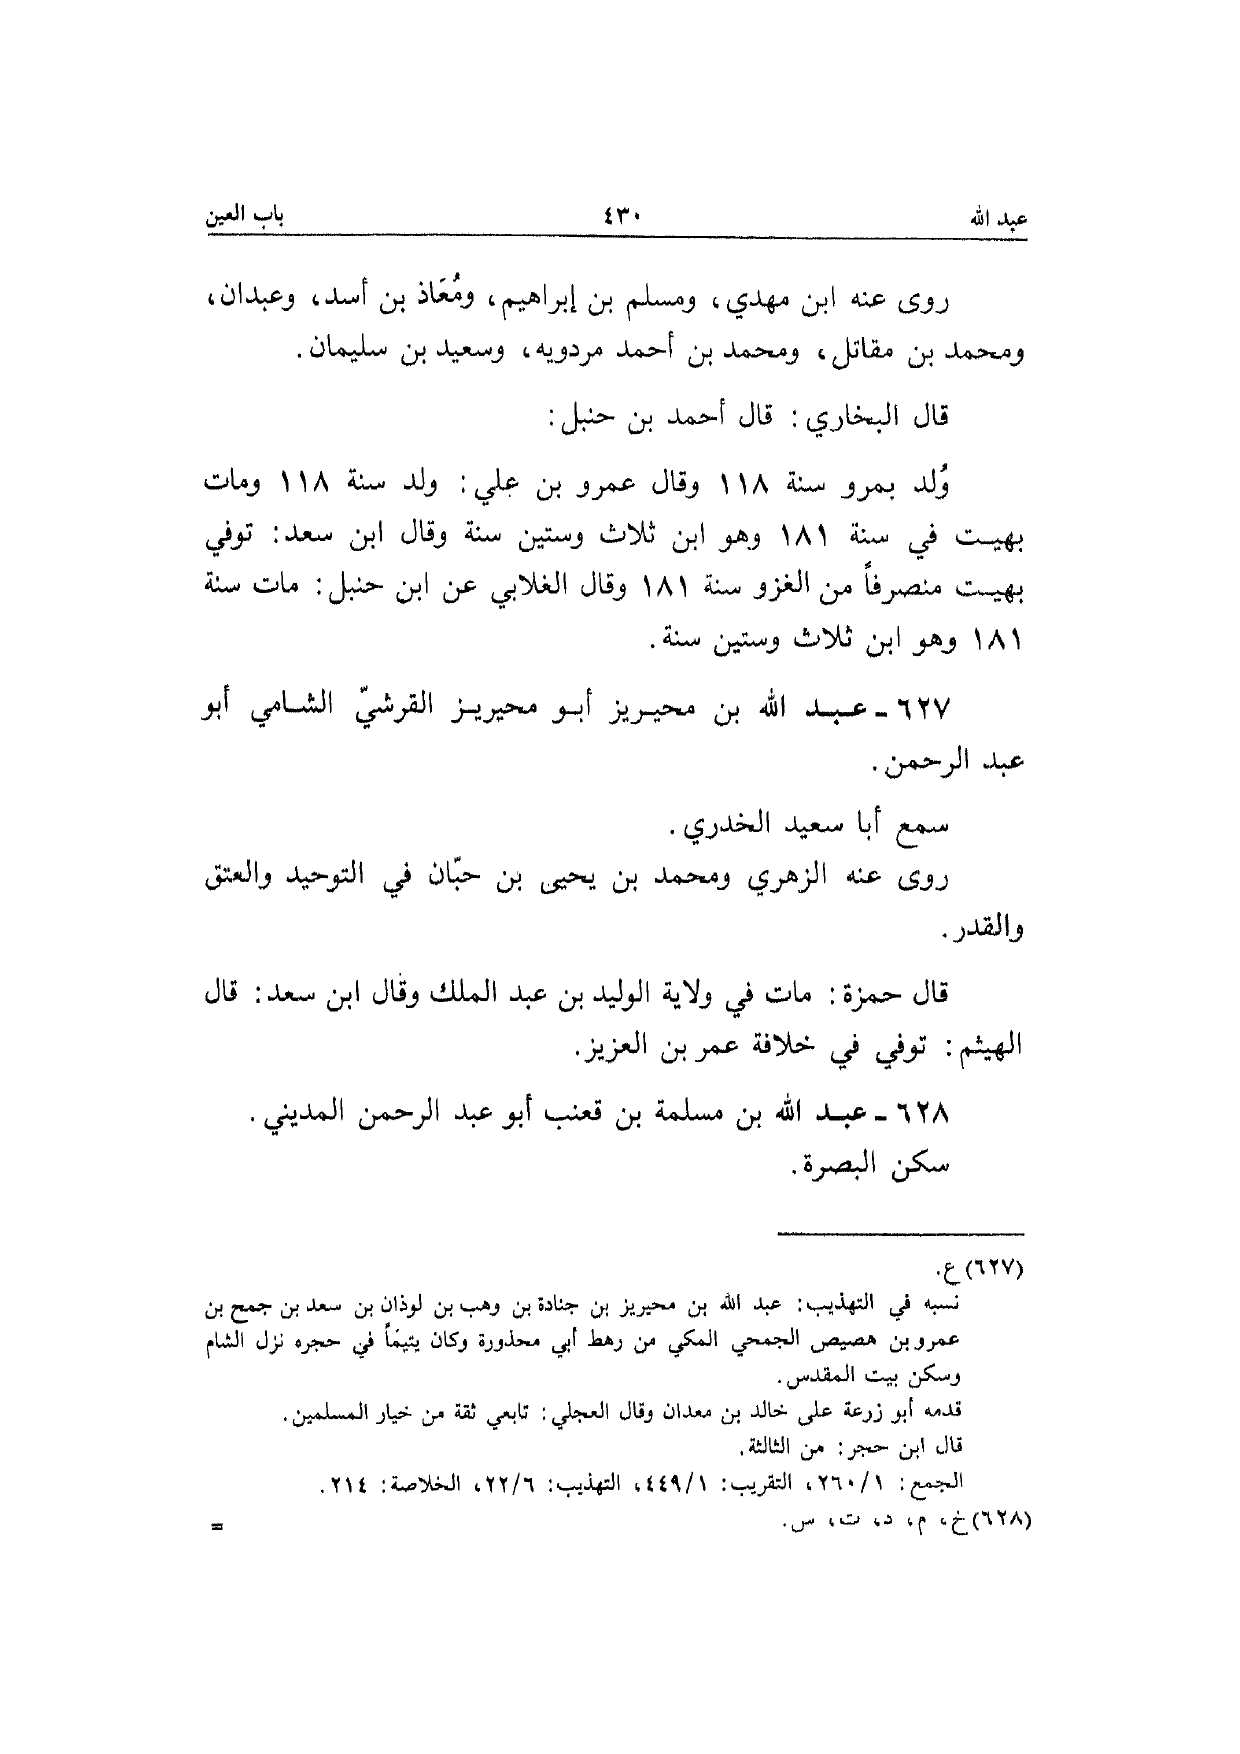 عبد الله ٤٣٠ باب العين
روى عنه ابن مهدي، ومسلم بن إبراهيم، ومُعَاذ بن أسد، وعبدان،
ومحمد بن مقاتل، ومحمد بن أحمد مردويه، وسعيد بن سليمان.
قال البخاري: قال أحمد بن حنبل:
وُلد بمرو سنة ١١٨ وقال عمرو بن علي: ولد سنة ١١٨ ومات
بهيت في سنة ١٨١ وهو ابن ثلاث وستين سنة وقال ابن سعد: توفي
بهيت منصرفاً من الغزو سنة ١٨١ وقال الغلابي عن ابن حنبل: مات سنة
١٨١ وهو ابن ثلاث وستين سنة.
٦٢٧ - عبد الله بن محيريز أبو محيريز القرشيّ الشامي أبو
عبد الرحمن.
سمع أبا سعيد الخدري.
روى عنه الزهري ومحمد بن يحيى بن حبّان في التوحيد والعتق
والقدر.
قال حمزة: مات في ولاية الوليد بن عبد الملك وقال ابن سعد: قال
الهيثم: توفي في خلافة عمر بن العزيز.
٦٢٨ - عبد الله بن مسلمة بن قعنب أبو عبد الرحمن المديني.
سكن البصرة.
(٦٢٧) ع.
نسبه في التهذيب: عبد الله بن محيريز بن جنادة بن وهب بن لوذان بن سعد بن جمح بن
عمرو بن هصيص الجمحي المكي من رهط أبي محذورة وكان يتيمَاً في حجره نزل الشام
وسكن بيت المقدس.
قدمه أبو زرعة على خالد بن معدان وقال العجلي: تابعي ثقة من خيار المسلمين.
قال ابن حجر: من الثالثة.
الجمع: ٢٦٠/١، التقريب: ٤٤٩/١، التهذيب: ٢٢/٦، الخلاصة: ٢١٤.
(٦٢٨) خ، م، د، ت، س. =